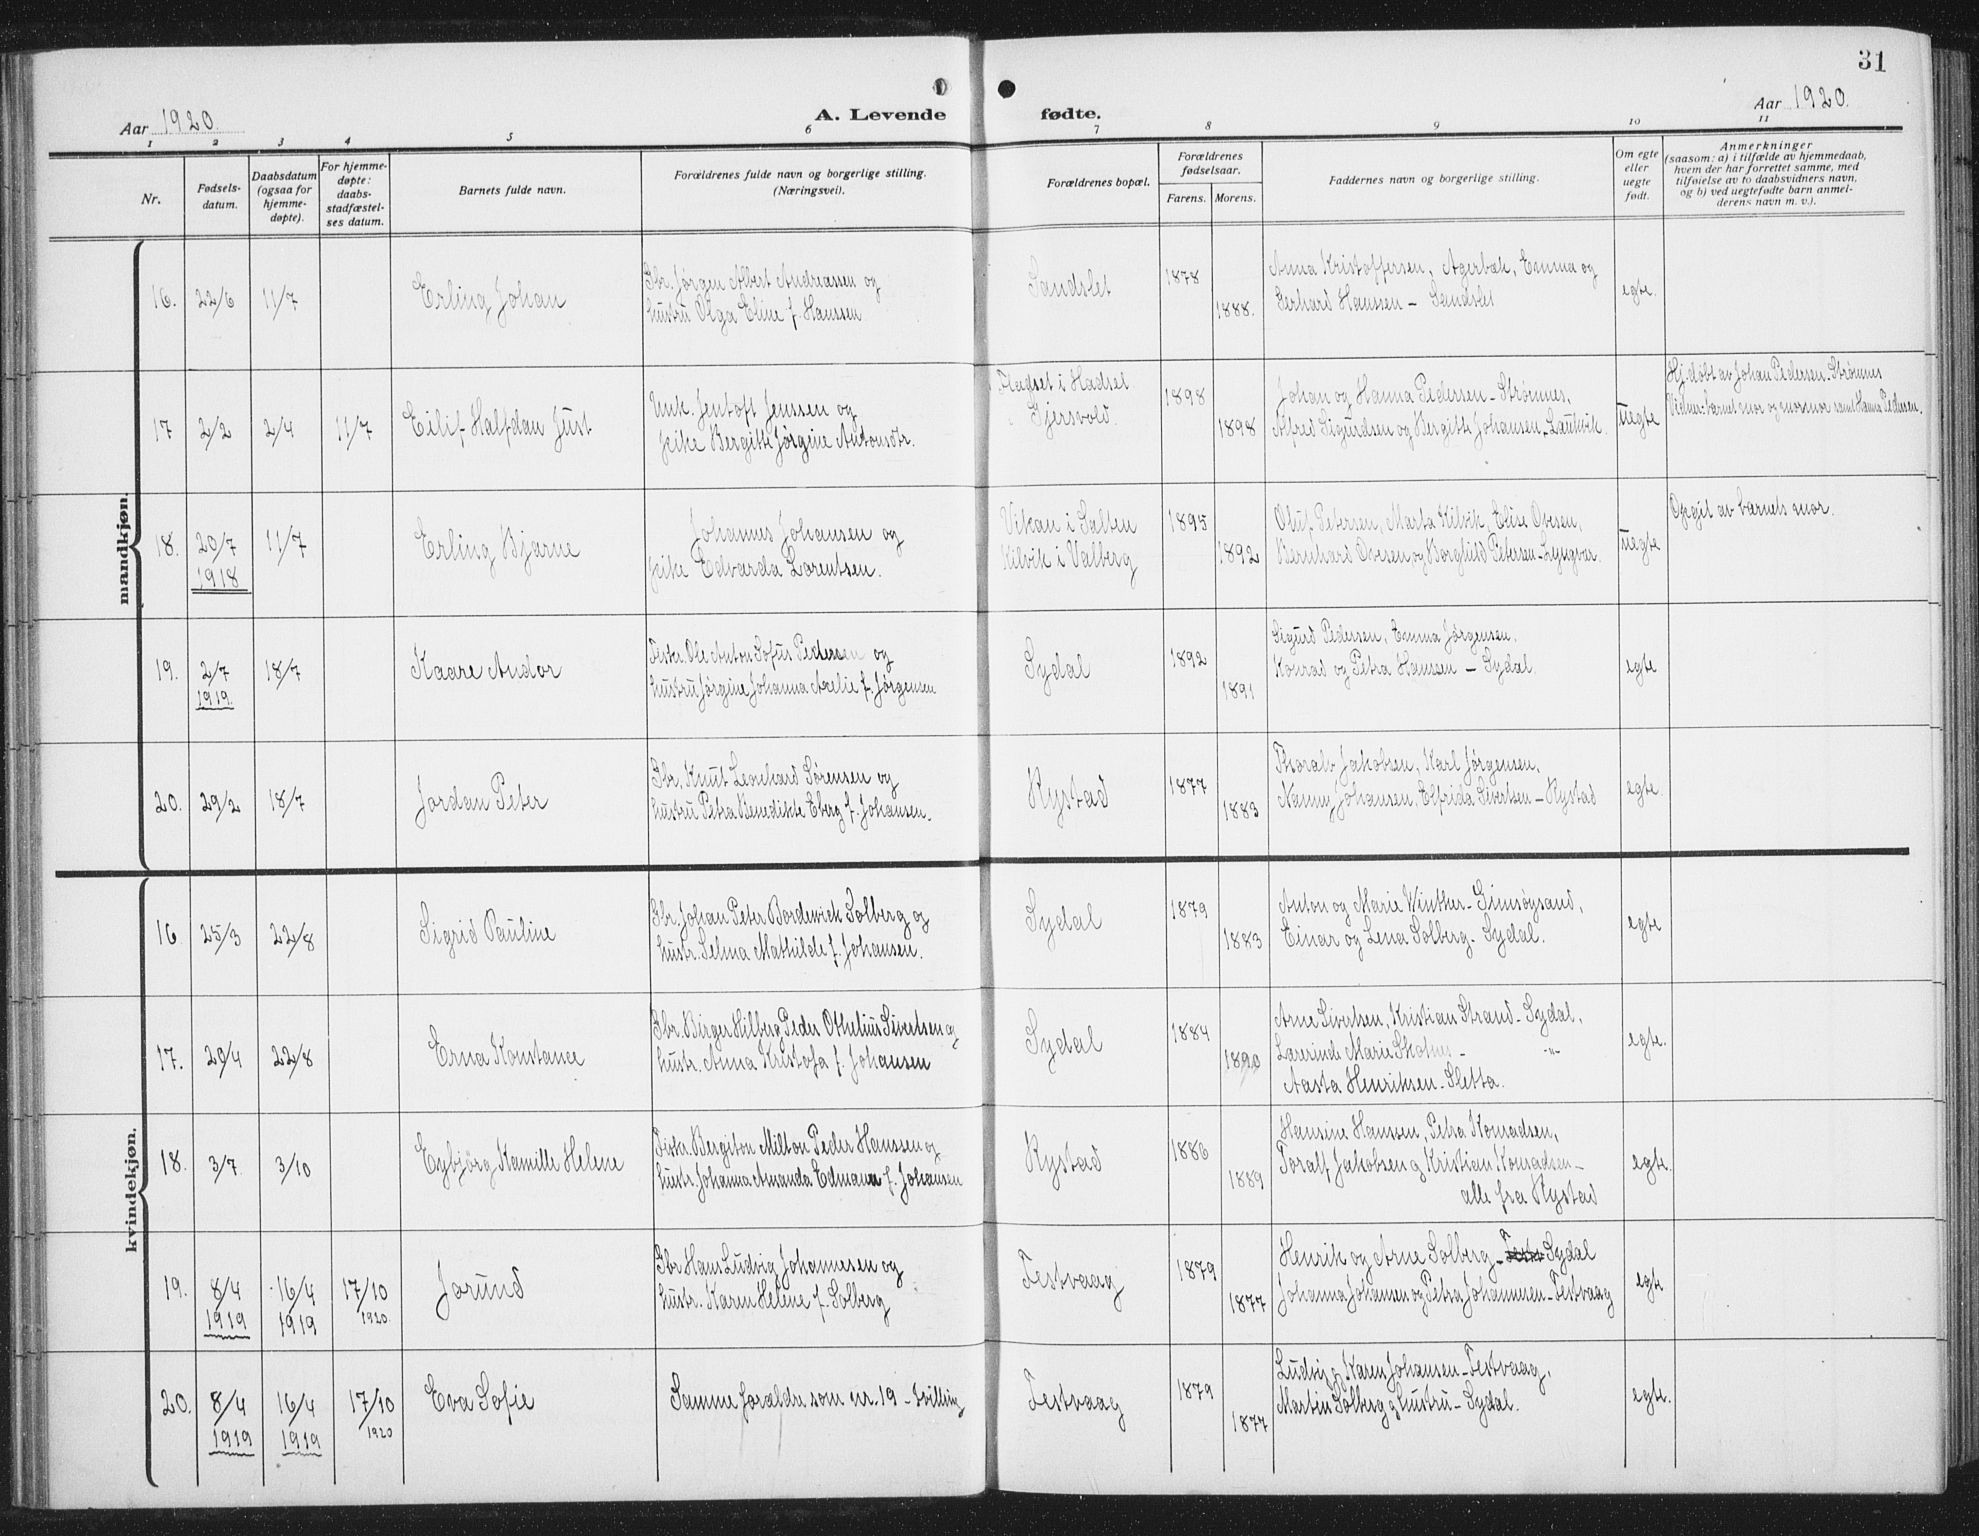 31
Aar 1920.
A. Levende
fødte.
Aar 1920.
1 2 3 4 5 6 7 8 9 10 11
Nr.
Fødsels-
datum.
Daabsdatum
(ogsaa for
hjemme-
døpte).
For hjemme-
døpte:
daabs-
stadfæstel-
ses datum.
Barnets fulde navn.
Forældrenes fulde navn og borgerlige stilling.
(Næringsvei).
Forældrenes bopæl.
Forældrenes
fødselsaar.
Farens. Morens.
Faddernes navn og borgerlige stilling.
Om egte
eller
uegte
født.
Anmerkninger
(saasom: a) i tilfælde av hjemmedaab,
hvem der har forrettet samme, med
tilføielse av to daabsvidners navn,
og b) ved uegtefødte barn anmel-
derens navn m. v.).
mandkjøn.
16. 22/6 11/7 Erling Johan
Gbr. Jørgen Albert Andreassen og
hustru Olga Eline f. Hanssen
Sandslet 1878 1888.
Anna Kristoffersen, Agerbæk, Emma og
Gerhard Hanssen - Sandslet
egte.
17 2/2 2/4 11/7 Eilif Halfdan Just
Unk. Jentoft Jenssen og
pike Bergitte Jørgine Antonsdtr.
Fladset i Hadsel
Gjersvold.
1898 1898
Johan og Hanna Pedersen - Strømnes,
Alfred Sigurdsen og Bergitte Johansen - Laukvik.
uegte
Hj.døbt av Johan Pedersen - Strømnes
Vidner: barnets mor og mormor samt Hanna Pedersen.
18. 20/7 1918 11/7 Erling Bjarne
Johannes Johansen og
pike Edvarda Lorentsen.
Vikan i Salten
Kilvik i Valberg
1895 1892
Oluf Petersen, Marta Kilvik, Elise Ovesen,
Bernhard Ovesen, og Borghild Petersen - Lyngvær.
uegte
Opgit av barnets mor.
19. 2/7 1919. 18/7 Kaare Andor
Fisk. Ole Anton Sofus Pedersen og
hustru Jørgine Johanna Amelie f. Jørgensen
Sydal 1892 1891
Sigurd Pedersen, Emma Jørgensen,
Konrad og Petra Hanssen - Sydal
egte
20. 29/2 18/7 Jordan Peter
Gbr. Knut Lenhard Sørensen og
hustru Petra Benedikte Eberg f. Johansen.
Rystad 1877 1883
Toralv Jakobsen, Karl Jørgensen,
Nanny Johansen, Elfrida Sivertsen - Rystad
egte.
kvindekjøn.
16 25/3 22/8 Sigrid Pauline
Gbr. Johan Peter Bordewick Solberg og
hustr. Selma Mathilde f. Johansen.
Sydal 1879 1883
Anton og Marie Winther - Gimsøysand,
Einar og Lena Solberg - Sydal.
egte
17. 29/4 22/8 Erna Konstance
Gbr. Birger Hilberg Peder Othelius Sivertsen og
hustr. Anna Kristofa f. Johansen
Sydal 1884 1890
Arne Sivertsen, Kristian Strand - Sydal,
Lærerinde Marie - " -
Aasta Henriksen - Sletta.
egte.
18. 3/7 3/10 Eybjörg Kamille Helene
Fisk. Bergiton Milton Peder Hanssen og
hustr. Johanna Amanda Edmann f. Johansen
Rystad 1886 1889
Hansine Hanssen, Petra Konradsen,
Toralf Jakobsen og Kristian Konradsen -
alle fra Rystad
egte.
19. 8/4 1919 16/4 1919 17/10 1920. Jorund
Gbr Hans Ludvig Johannesen og
hustr. Karen Helene f. Solberg
Festvaag 1879 1877
Henrik og Arne Solberg - Sydal
Johanna Johansen og Petra Johannesen - Festvaag
egte
20. 8/4 1919 16/4 1919 17/10 1920 Eva Sofie
Samme forældre som nr. 19 - Tvilling
Festvaag 1879 1877
Ludvig og Karen Johansen - Festvaag,
Martin Solberg og hustru - Sydal.
egte.